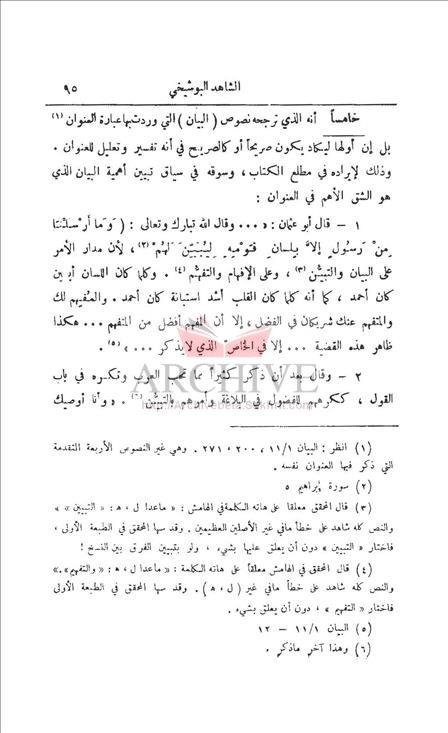 الشاهد البوشيخي
٩٥
خامساً أنه الذي ترجحه نصوص (البيان) التي وردت بها عبارة العنوان (١)
بل إن أولها ليكاد يكون صريحاً أو كالصريح في أنه تفسير وتعليل للعنوان .
وذلك لإيراده في مطلع الكتاب، وسوقه في سياق تبيين أهمية البيان الذي
هو الشق الأهم في العنوان :
١ – قال أبو عثمان : « ... وقال الله تبارك وتعالى : ( وَمَا أَرْسَلْنَا
مِنْ رَسُولٍ إلاَّ بِلِسانِ قَوْمِهِ لِيُبَيِّنَ لَهُمْ )(٢) ، لأن مدار الأمر
على البيان والتبيُّن (٣) ، وعلى الإفهام والتفهُّم (٤) . وكلما كان اللسان أبين
كان أحمد ، كما أنه كلما كان القلب أشد استبانة كان أحمد . والمفهم لك
والمتفهم عنك شريكان في الفضل ، إلا أن المفهم أفضل من المتفهم ... هكذا
ظاهر هذه القضية ... إلا في الخاص الذي لا يذكر ... » (٥) .
ARCHIVE
٢ – وقال بعد أن ذكر كثيراً مما تحب العرب وتكره في باب
http://Archivebeta.Sakhrit.com
القول ، ككرههم للفضول في البلاغة وأمرهم بالتبيُّن(٦) . « وأنا أوصيك
(١) انظر : البيان ١١/١ ، ٢٠٠ ، ٢٧١ . وهي غير النصوص الأربعة المتقدمة
التي ذكر فيها العنوان نفسه .
(٢) سورة إبراهيم ٥
(٣) قال المحقق معلقا على هاته الكلمة في الهامش : « ماعدا ل ، ه : « التبيين » »
والنص كله شاهد على خطأ مافي غير الأصلين العظيمين . وقد سها المحقق في الطبعة الأولى ،
فاختار « التبيين » دون أن يعلق عليها بشيء ، ولو بتبيين الفرق بين النسخ !
(٤) قال المحقق في الهامش معلقاً على هاته الكلمة : « ماعدا ل ، ه : « والتفهيم » . »
والنص كله شاهد على خطأ مافي غير ( ل ، ه ) . وقد سها المحقق في الطبعة الأولى
فاختار « التفهيم » ، دون أن يعلق بشيء .
(٥) البيان ١١/١ – ١٢
(٦) وهذا آخر ماذكر .